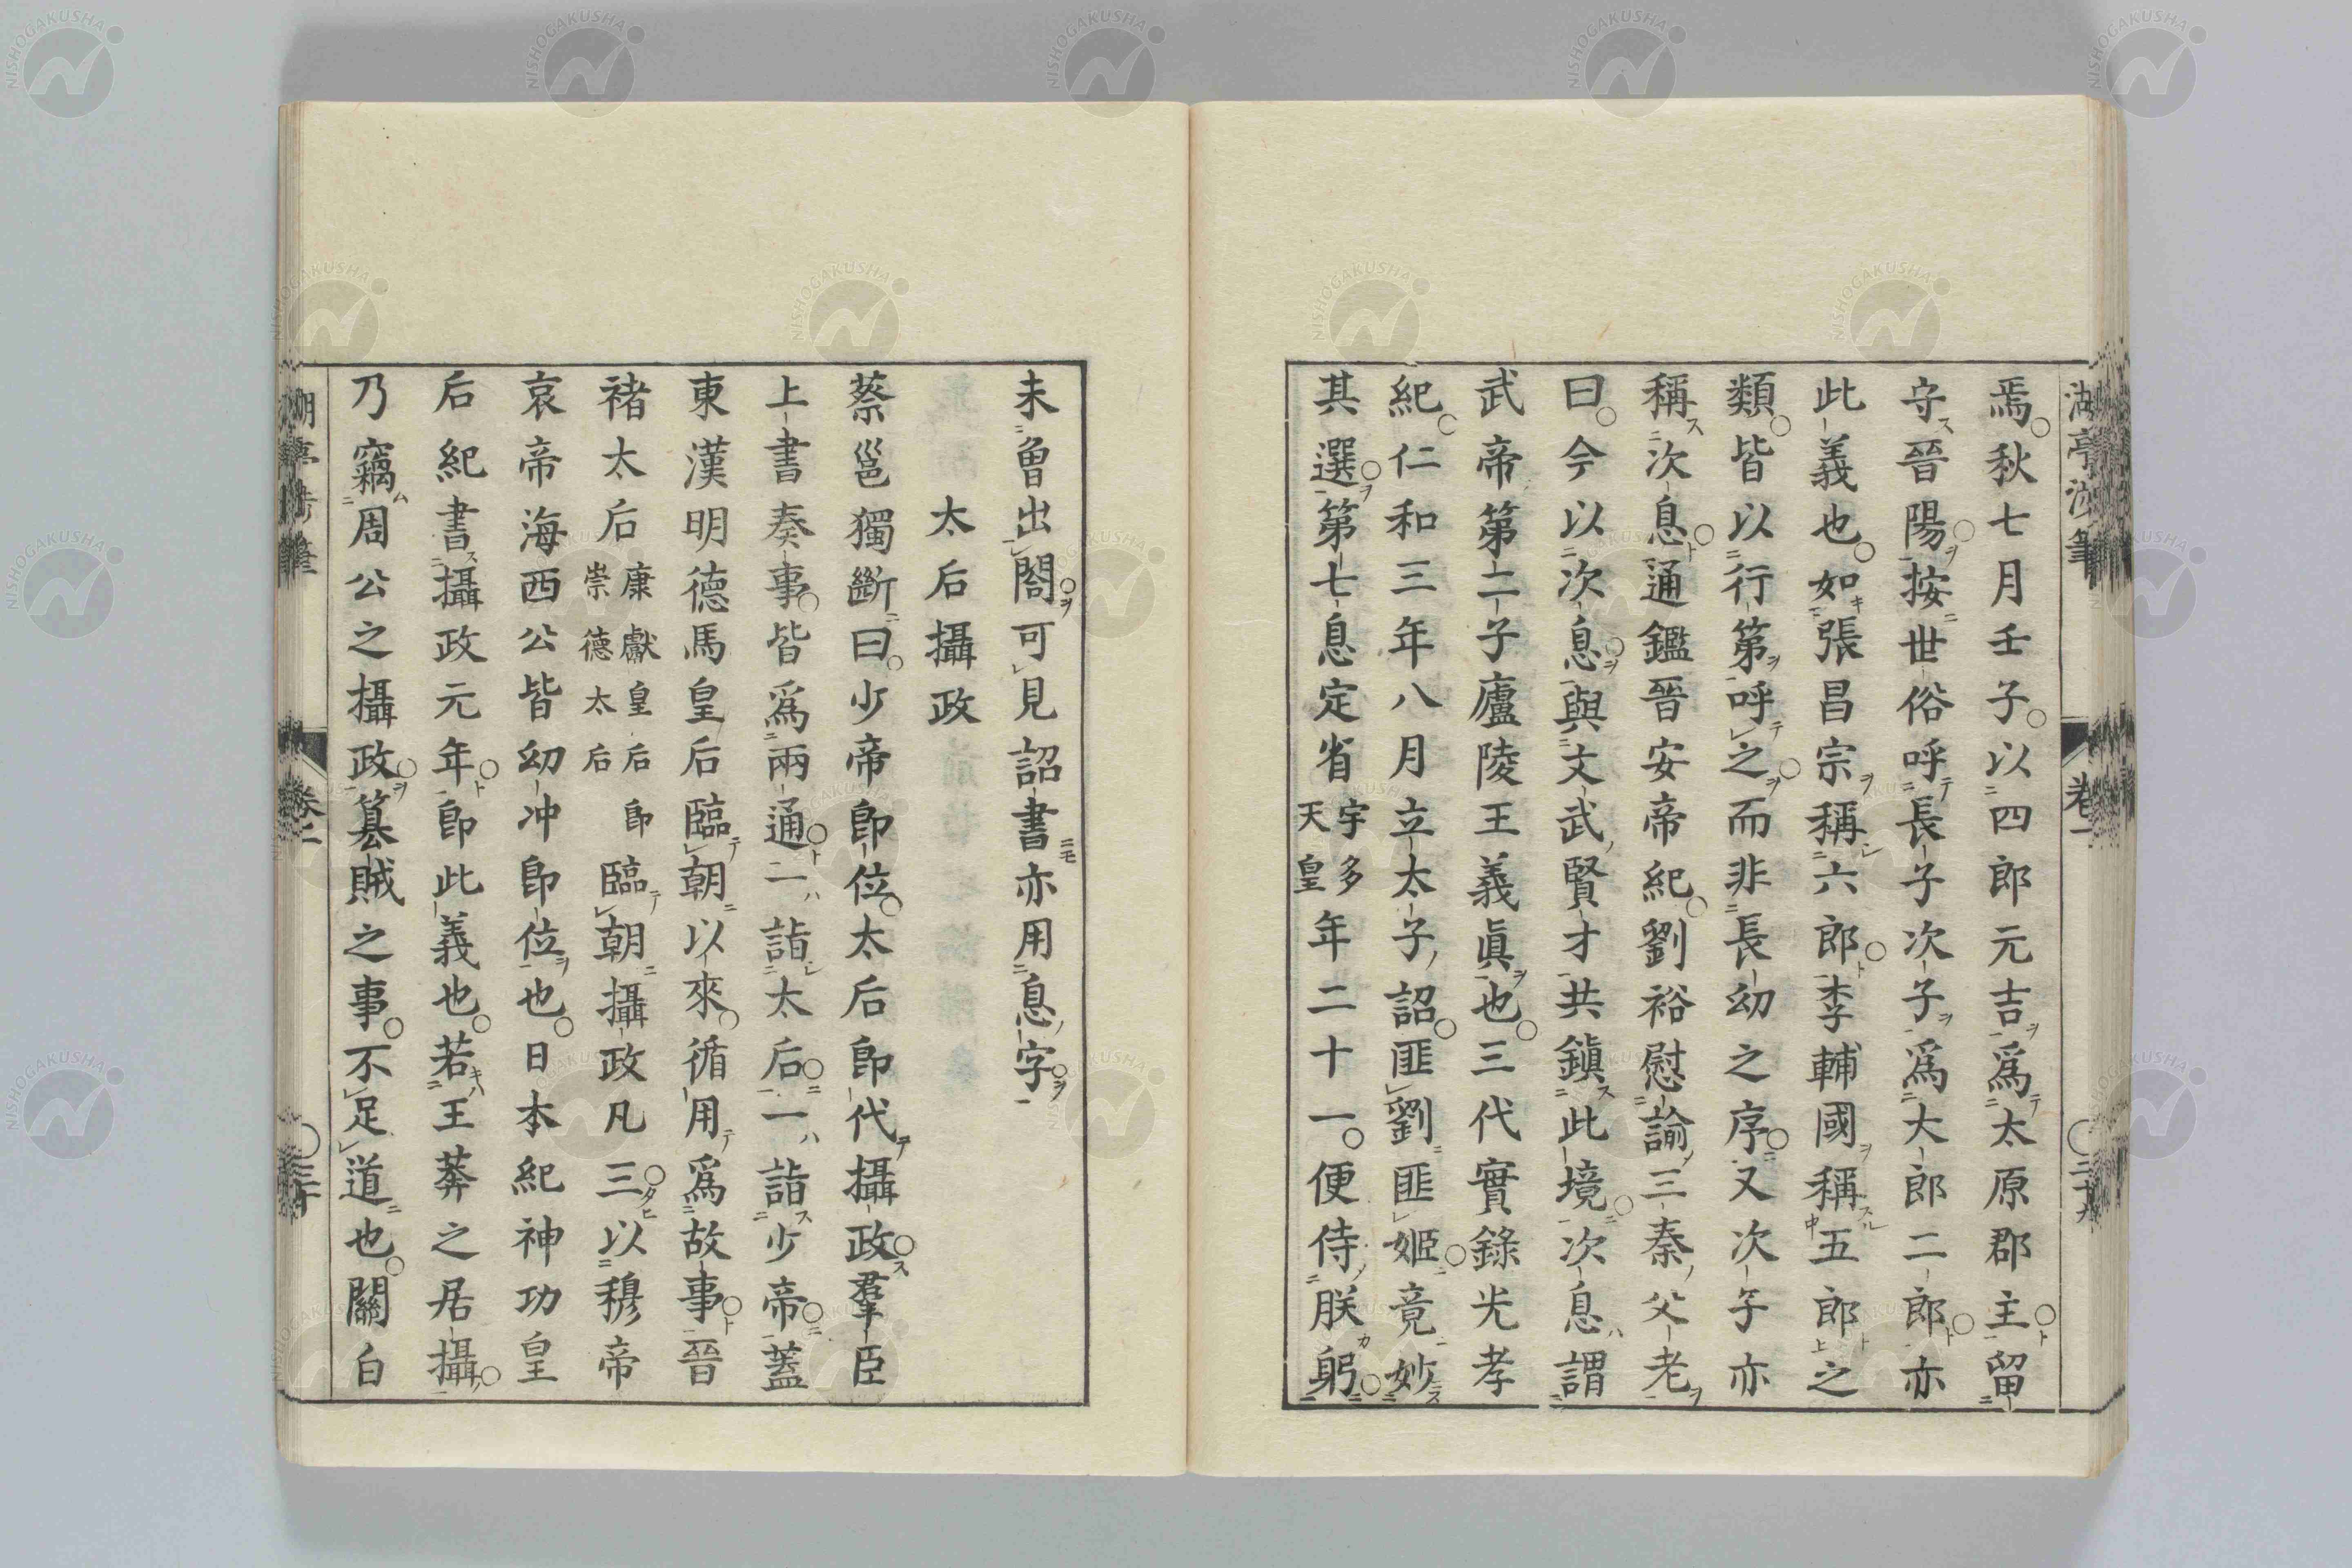 焉秋七月壬子以四郎元吉爲太原郡主留
守晉陽按世俗呼長子次子爲大郎二郎亦
此義也如張昌宗稱六郎李輔國稱五郎之
類皆以行第呼之而非長幼之序又次子亦
稱次息通鑑晉安帝紀劉裕慰諭三秦父老
曰今以次息與文武賢才共鎮此境次息謂
武帝第二子廬陵王義眞也三代實錄光孝
紀仁和三年八月立太子詔匪劉匪姬竟妙
其選第七息定省宇多天皇年二十一便侍朕躬
卷一
未曾出閤可見詔書亦用息字
太后攝政
蔡邕獨斷曰少帝卽位太后卽代攝政羣臣
上書奏事皆爲兩通一詣太后一詣少帝蓋
東漢明德馬皇后臨朝以來循用爲故事晉
褚太后康獻皇后崇德太后卽臨朝攝政凡三以穆帝
哀帝海西公皆幼冲卽位也日本紀神功皇
后紀書攝政元年卽此義也若王莽之居攝
乃竊周公之攝政簒賊之事不足道也關白
NISHOGAKUSHA